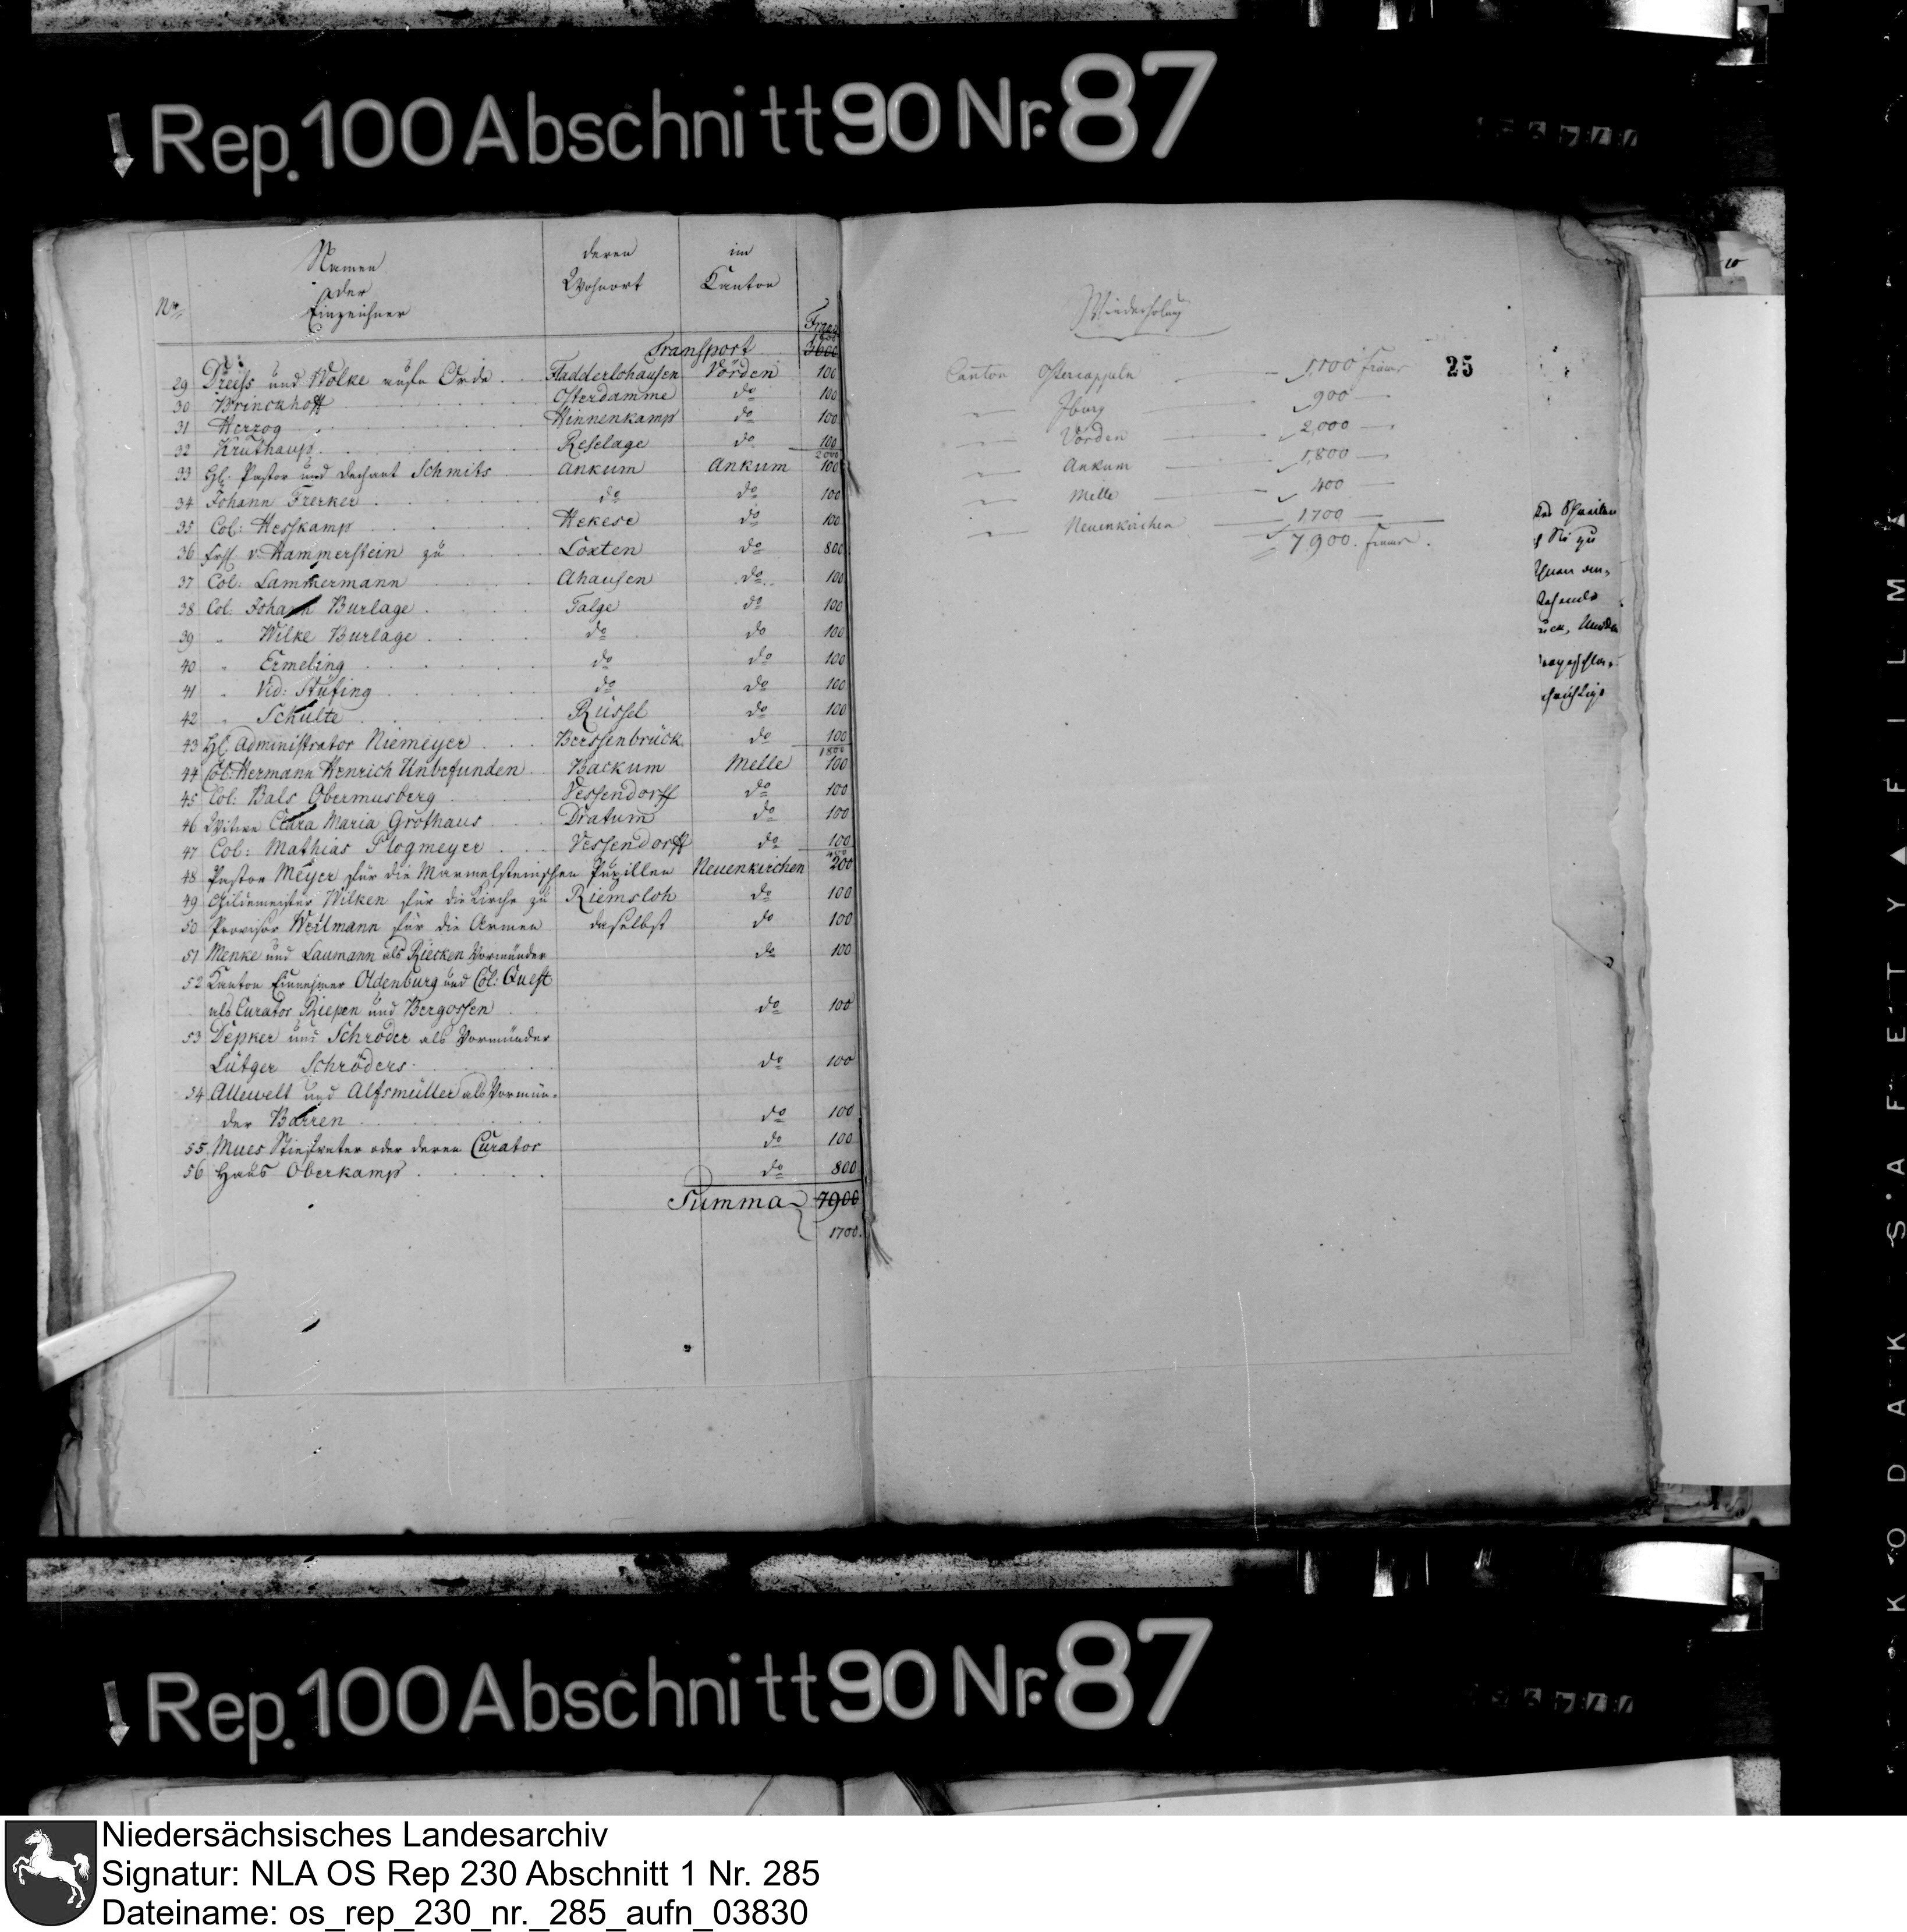 Rep. 100 Abschnitt 90 Nr. 87
No. Namen der Einzeichner deren Wohnort im Canton Franc
Transport 3600
29 Dreifs und Wolke Fladderlohausen Vörden 100
30 Brinckhoff Osterdamme do 100
31 Herzog Hinnenkamp do 100
32 Kruthaup Reselage do 100
2000
33 H. Pastor und Dechant Schmits Ankum Ankum 100
34 Johann Frerker do do 100
35 Col: Hesskamp Hekese do 100
36 v: Hammerstein zu Loxten do 800
37 Col: Lammermann Ahausen do 100
38 Col: Johann Burlage Talge do 100
39 " Wilke Burlage do do 100
40 " Ermeling do do 100
41 " Vid: Stüfing do do 100
42 " Schulte Rüssel do 100
43 H. Administrator Niemeyer Berssenbrück do 100
1800
44 Col: Hermann Henrich Unbefunden Backum Melle 100
45 Col: Bals Obermusberg Vessendorff do 100
46 Witwe Clara Maria Grothaus Dratum do 100
47 Col: Mathias Plogmeyer Vessendorff do 100
400
48 Pastor Meyer für die Marmelsteinschen Pupillen Neuenkirchen 200
49 Gildemeister Wilken für die Kirche zu Riemsloh do 100
50 Provisor Weilmann für die Armen daselbst do 100
51 Menke und Laumann als Riecken Vormünder do 100
52 Canton Einnehmer Oldenburg und Col: Quest
als Curator Piepen und Bergossen do 100
53 Depker und Schröder als Vormünder
Lütger Schröders do 100
54 Allewelt und Alfsmüller als Vormün-
der Barren do 100
55 Mues Stiefvater oder deren Curator do 100
56 Haus Oberkamp do 800
Summa 7900
1700
Wiederholung
25
Canton Ostercappeln 1,100 Francs
" Iburg 900
" Vörden 2,000
" Ankum 1,800
" Melle 400
" Neuenkirchen 1,700
7,900. Francs.
Rep. 100 Abschnitt 90 Nr. 87
KODAK SAFETY FILM
Niedersächsisches Landesarchiv
Signatur: NLA OS Rep 230 Abschnitt 1 Nr. 285
Dateiname: os_rep_230_nr._285_aufn_03830